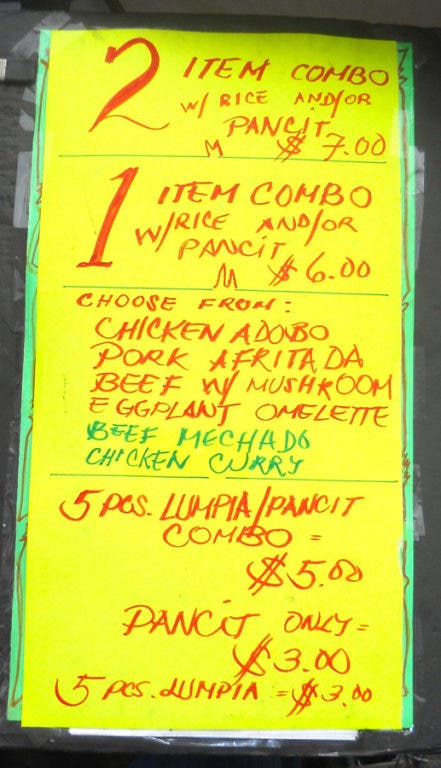 2 ITEM COMBO
W/ RICE AND/OR
PANCIT
$7.00
1 ITEM COMBO
W/RICE AND/OR
PANCIT
$6.00
CHOOSE FROM:
CHICKEN ADOBO
PORK AFRITADA
BEEF W/ MUSHROOM
EGGPLANT OMELETTE
BEEF MECHADO
CHICKEN CURRY
5 PCS. LUMPIA/PANCIT
COMBO =
$5.00
PANCIT ONLY =
$3.00
5 PCS. LUMPIA = $3.00